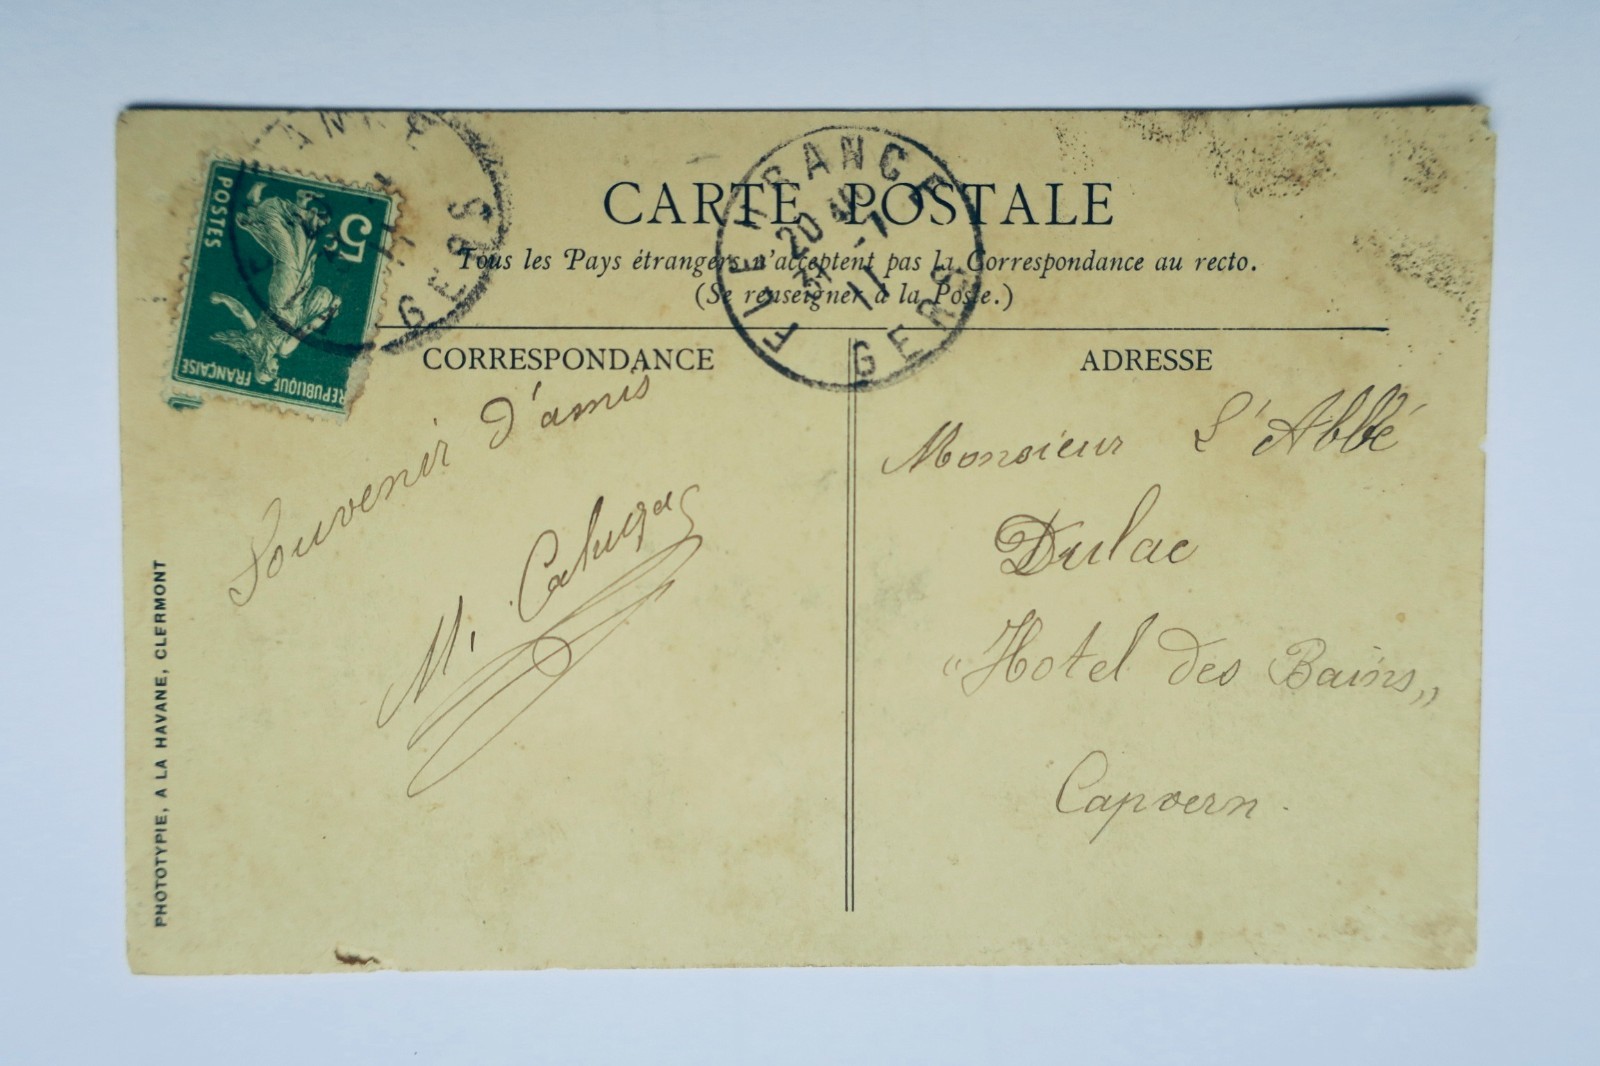 CARTE POSTALE
Tous les Pays étrangers n'acceptent pas la Correspondance au recto.
(Se renseigner à la Poste.)
CORRESPONDANCE
ADRESSE
5
POSTES
REPUBLIQUE FRANÇAISE
GERS
FLEURANCE
20
31 -7
11
GERS
Souvenir d'amis
M.
Monsieur L'Abbé
Dulac
"Hotel des Bains"
Capvern.
PHOTOTYPIE, A LA HAVANE, CLERMONT